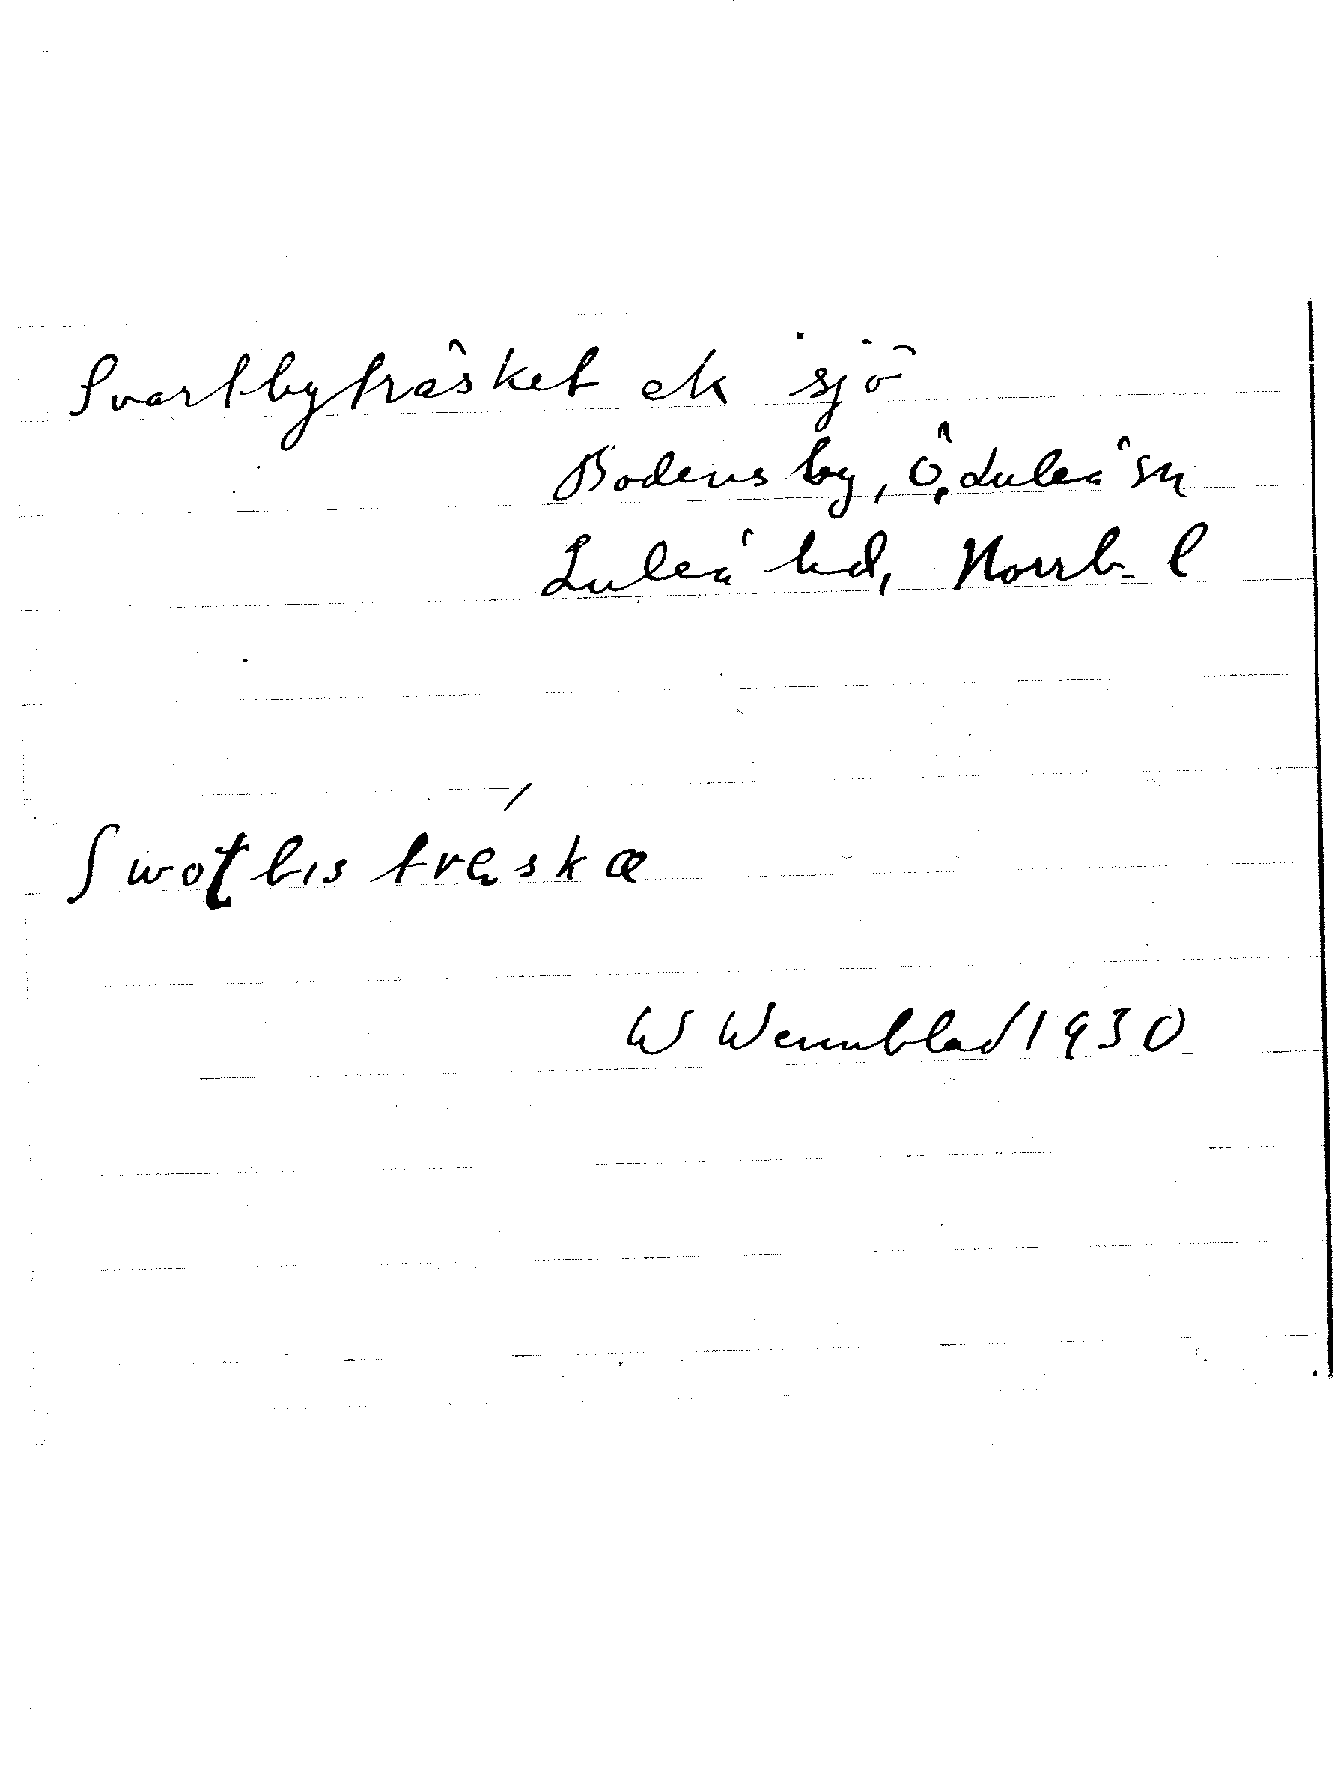 Svartbyträsket ek sjö
Bodens by, Ö. Luleå sn
Luleå hd, Norrb. l
Swotbis tręskæ
W Wennblad 1930